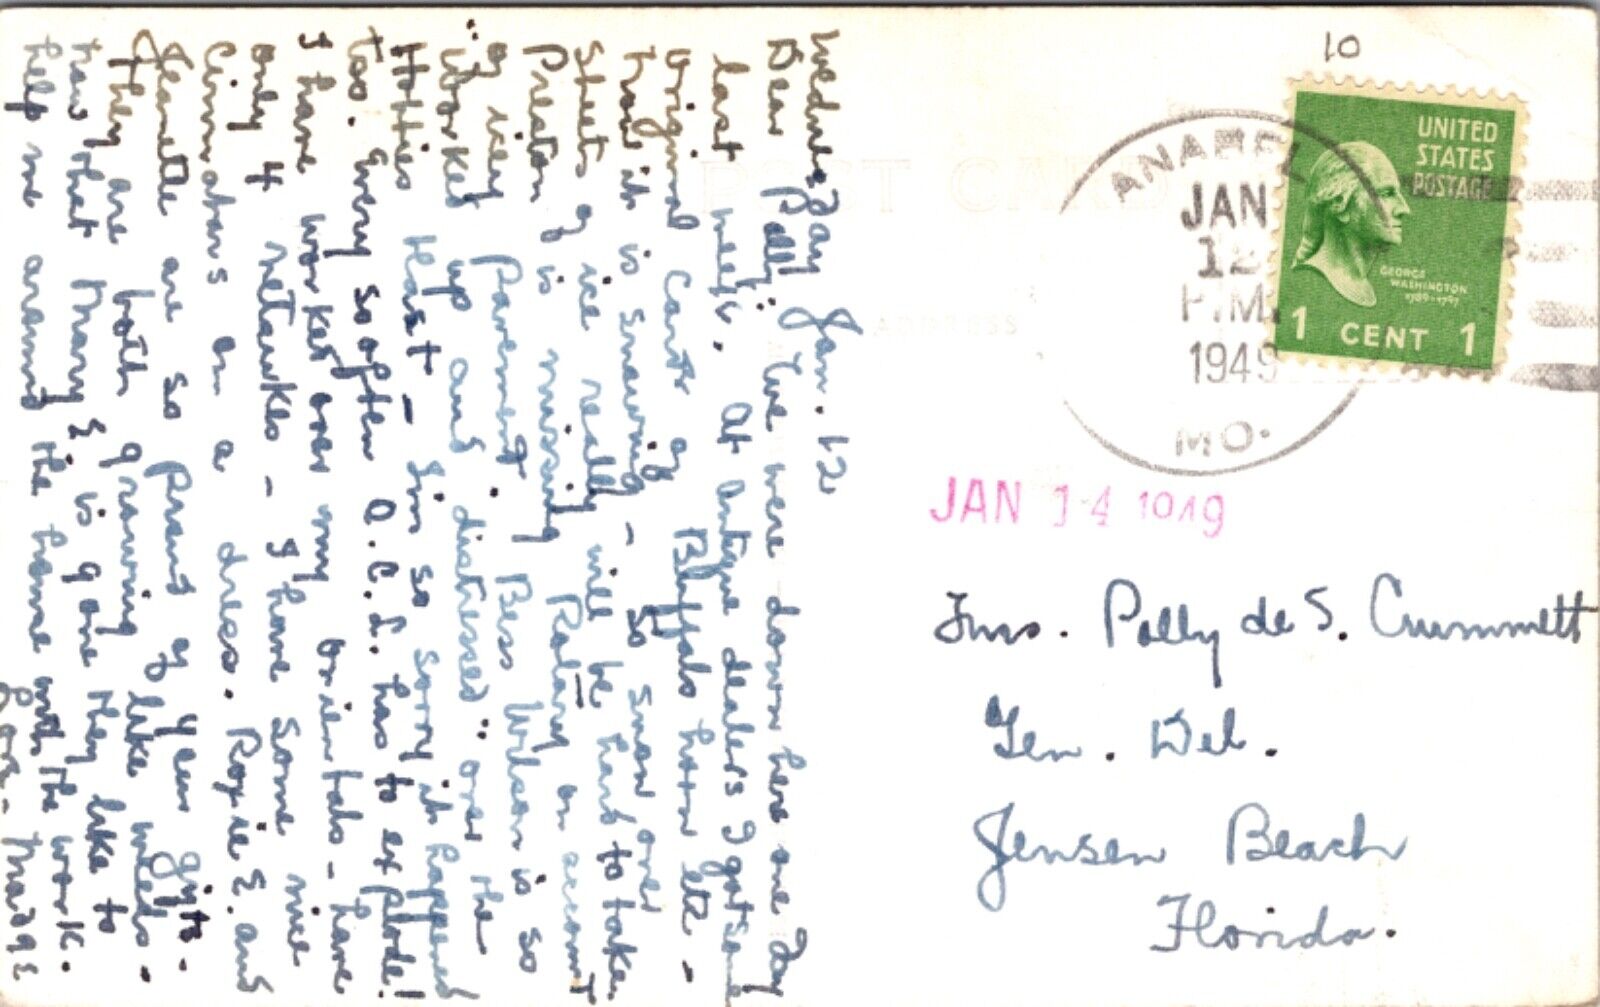 Wednesday Jan. 12
Dear Polly: We were down here one day
last week. At antique dealers I got some
original cards of Buffalo horn etc -
how it is snowing - so snow over
sheet of ice really will be hard to take.
Preston is missing Rotary on account
of icy pavement. Bess Wilson is so
"worked up and distressed" over the
Hotties Hast - I'm so sorry it happened
too. Every so often O.C.L. has to explode!
I have worked over my orientals - have
only 4 netsukes - I have some nice
Cinnabars on a dress. Roxie E. and
Jeanette are so proud of your gifts.
They are both growing like weeds -
now that Mary E is gone they like to
help me around the home with the work.
Love - Madge
POST CARD
ADDRESS
10
ANABEL
JAN
12
P.M.
1949
MO.
UNITED
STATES
POSTAGE
GEORGE
WASHINGTON
1789-1797
1 CENT 1
JAN 14 1949
Mrs. Polly de S. Crummett
Gen. Del.
Jensen Beach
Florida.